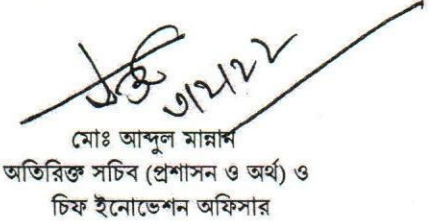 মোঃ আব্দুল মান্নান
অতিরিক্ত সচিব (প্রশাসন ও অর্থ) ও
চিফ ইনোভেশন অফিসার